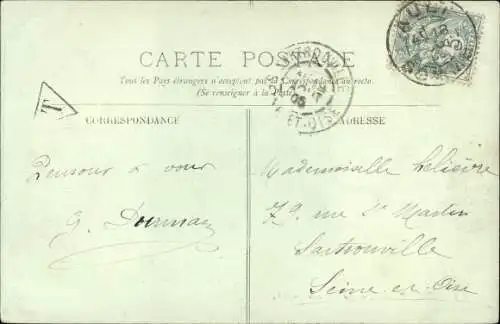 CARTE POSTALE
Tous les Pays étrangers n'acceptent pas la Correspondance au recto.
(Se renseigner à la Poste)
T
CORRESPONDANCE
ADRESSE
Pensour à vour
G.
Mademoiselle Lelièvre
79 rue St Martin
Sartrouville
Seine-et-Oise
SARTROUVILLE
05
ET-OISE
AULT